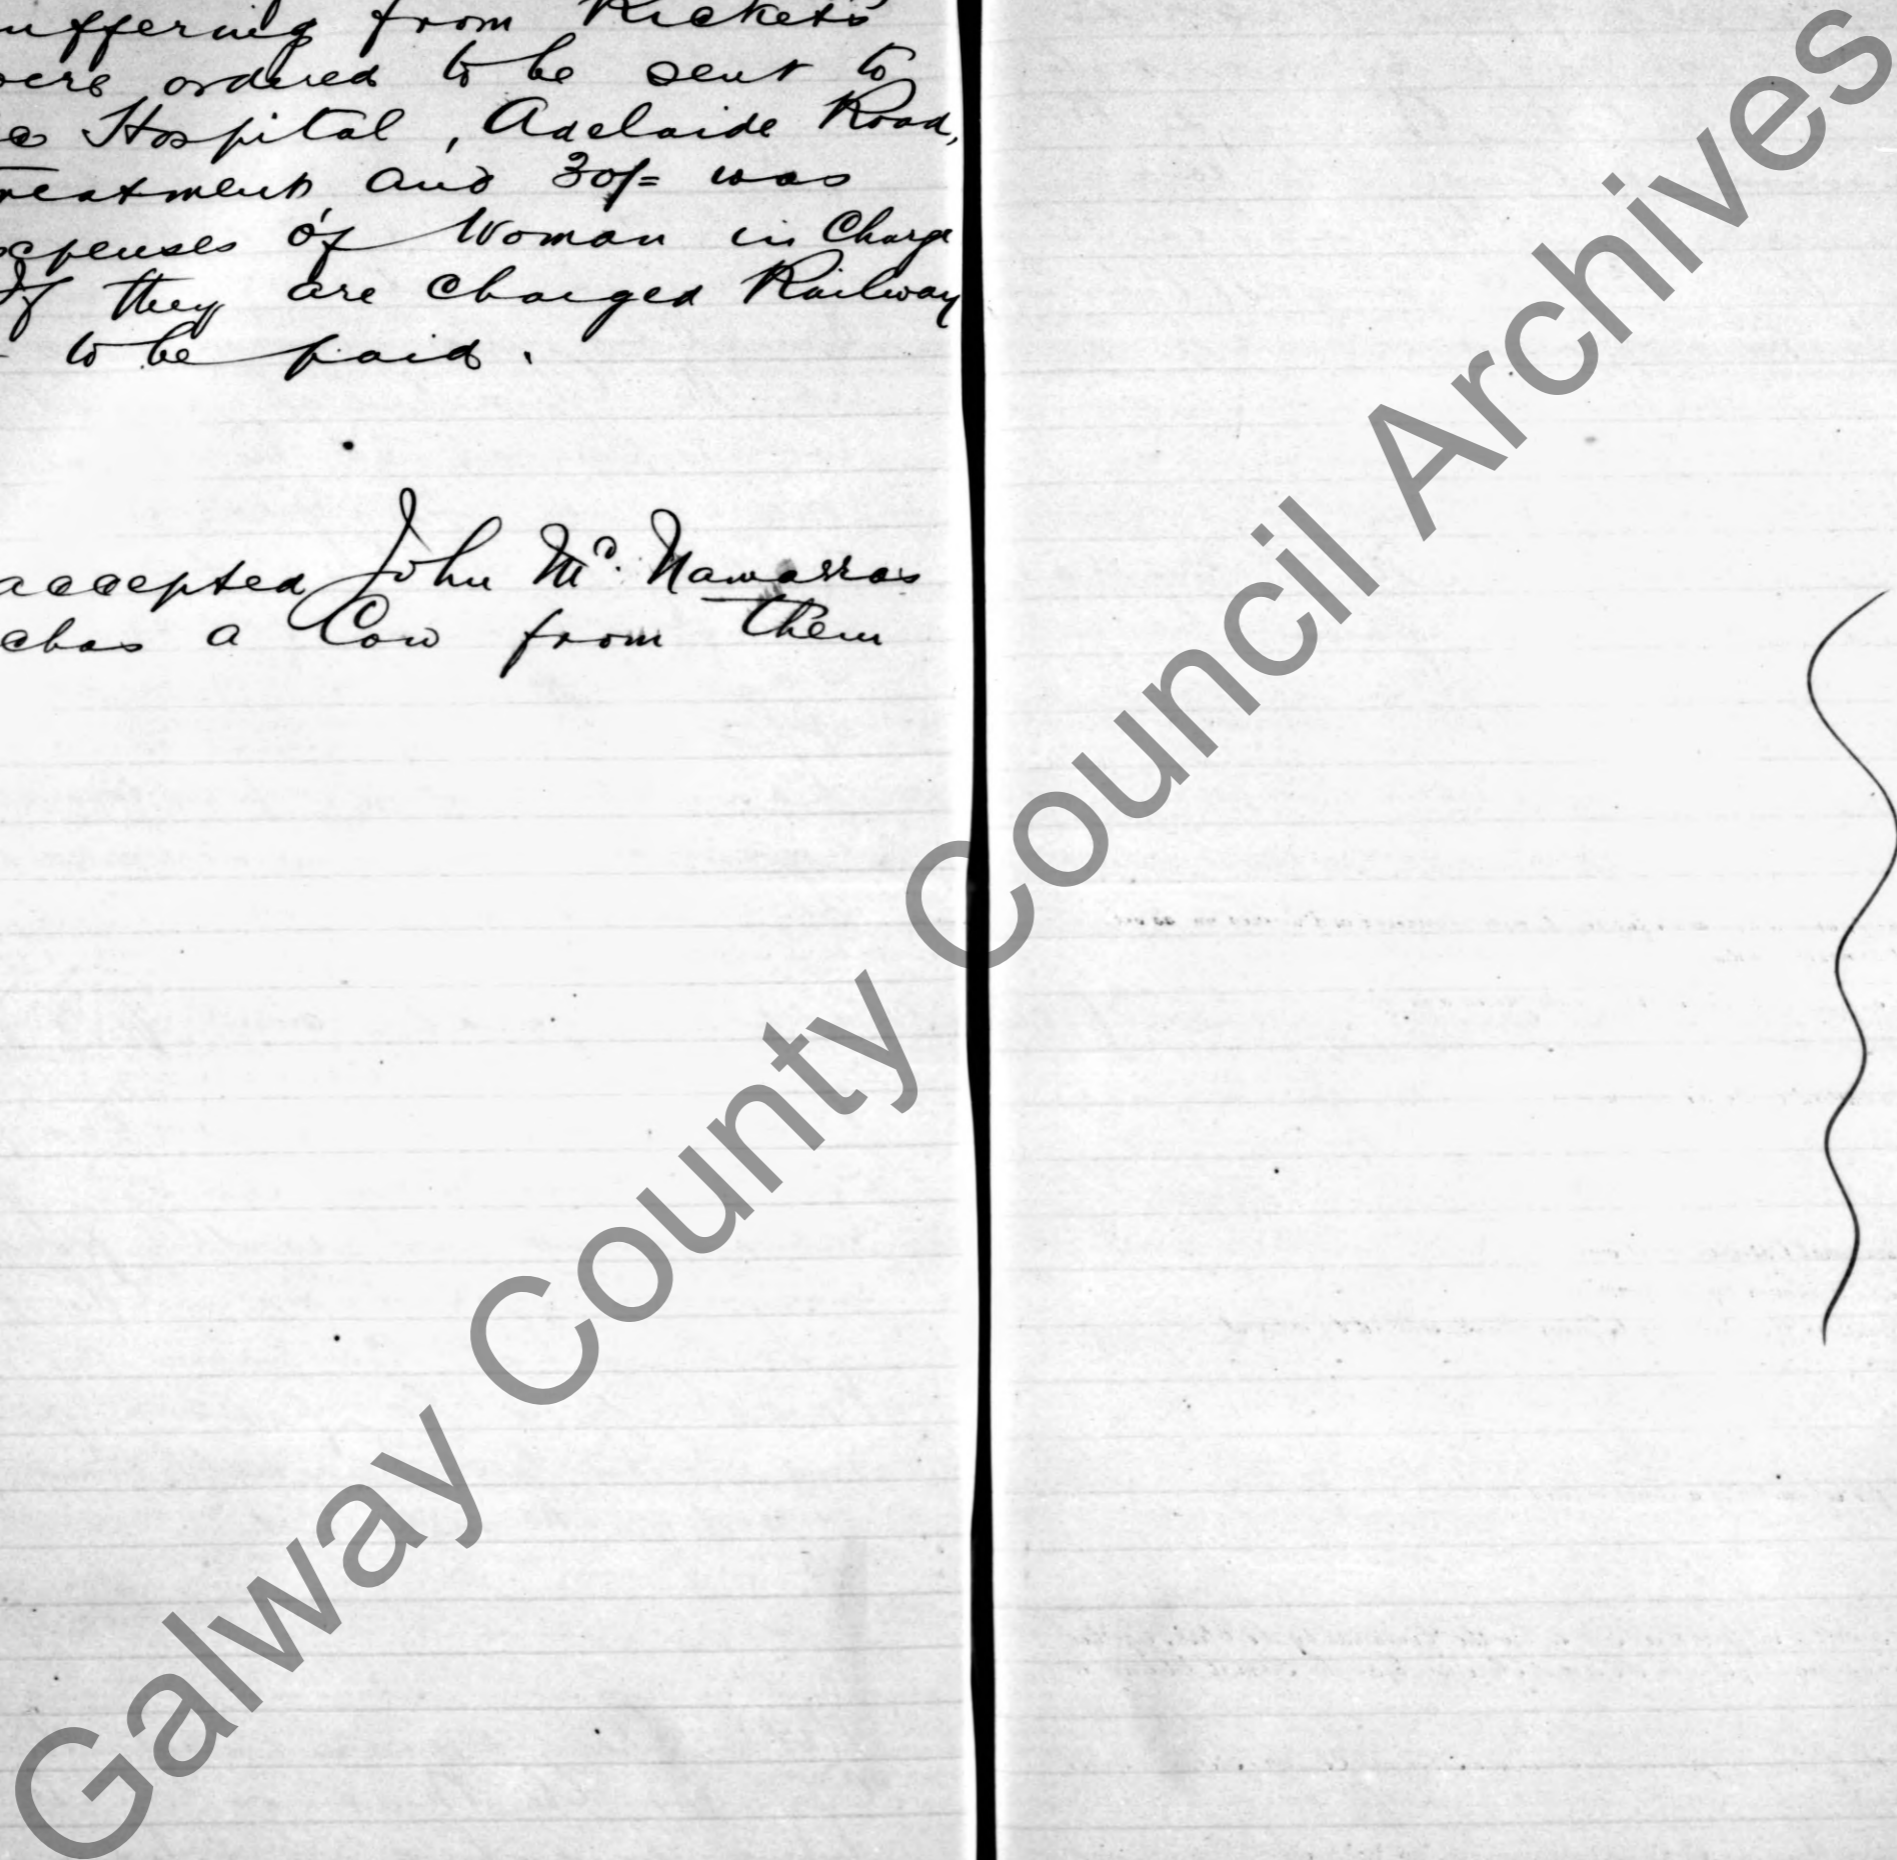 uffering from Rickets
were ordered to be sent to
Hospital, Adelaide Road,
reatment and 30/= was
xpenses of Woman in Charge
If they are charged Railway
to be paid.
accepted John McNamaras
chas a Cow from them
Galway County Council Archives